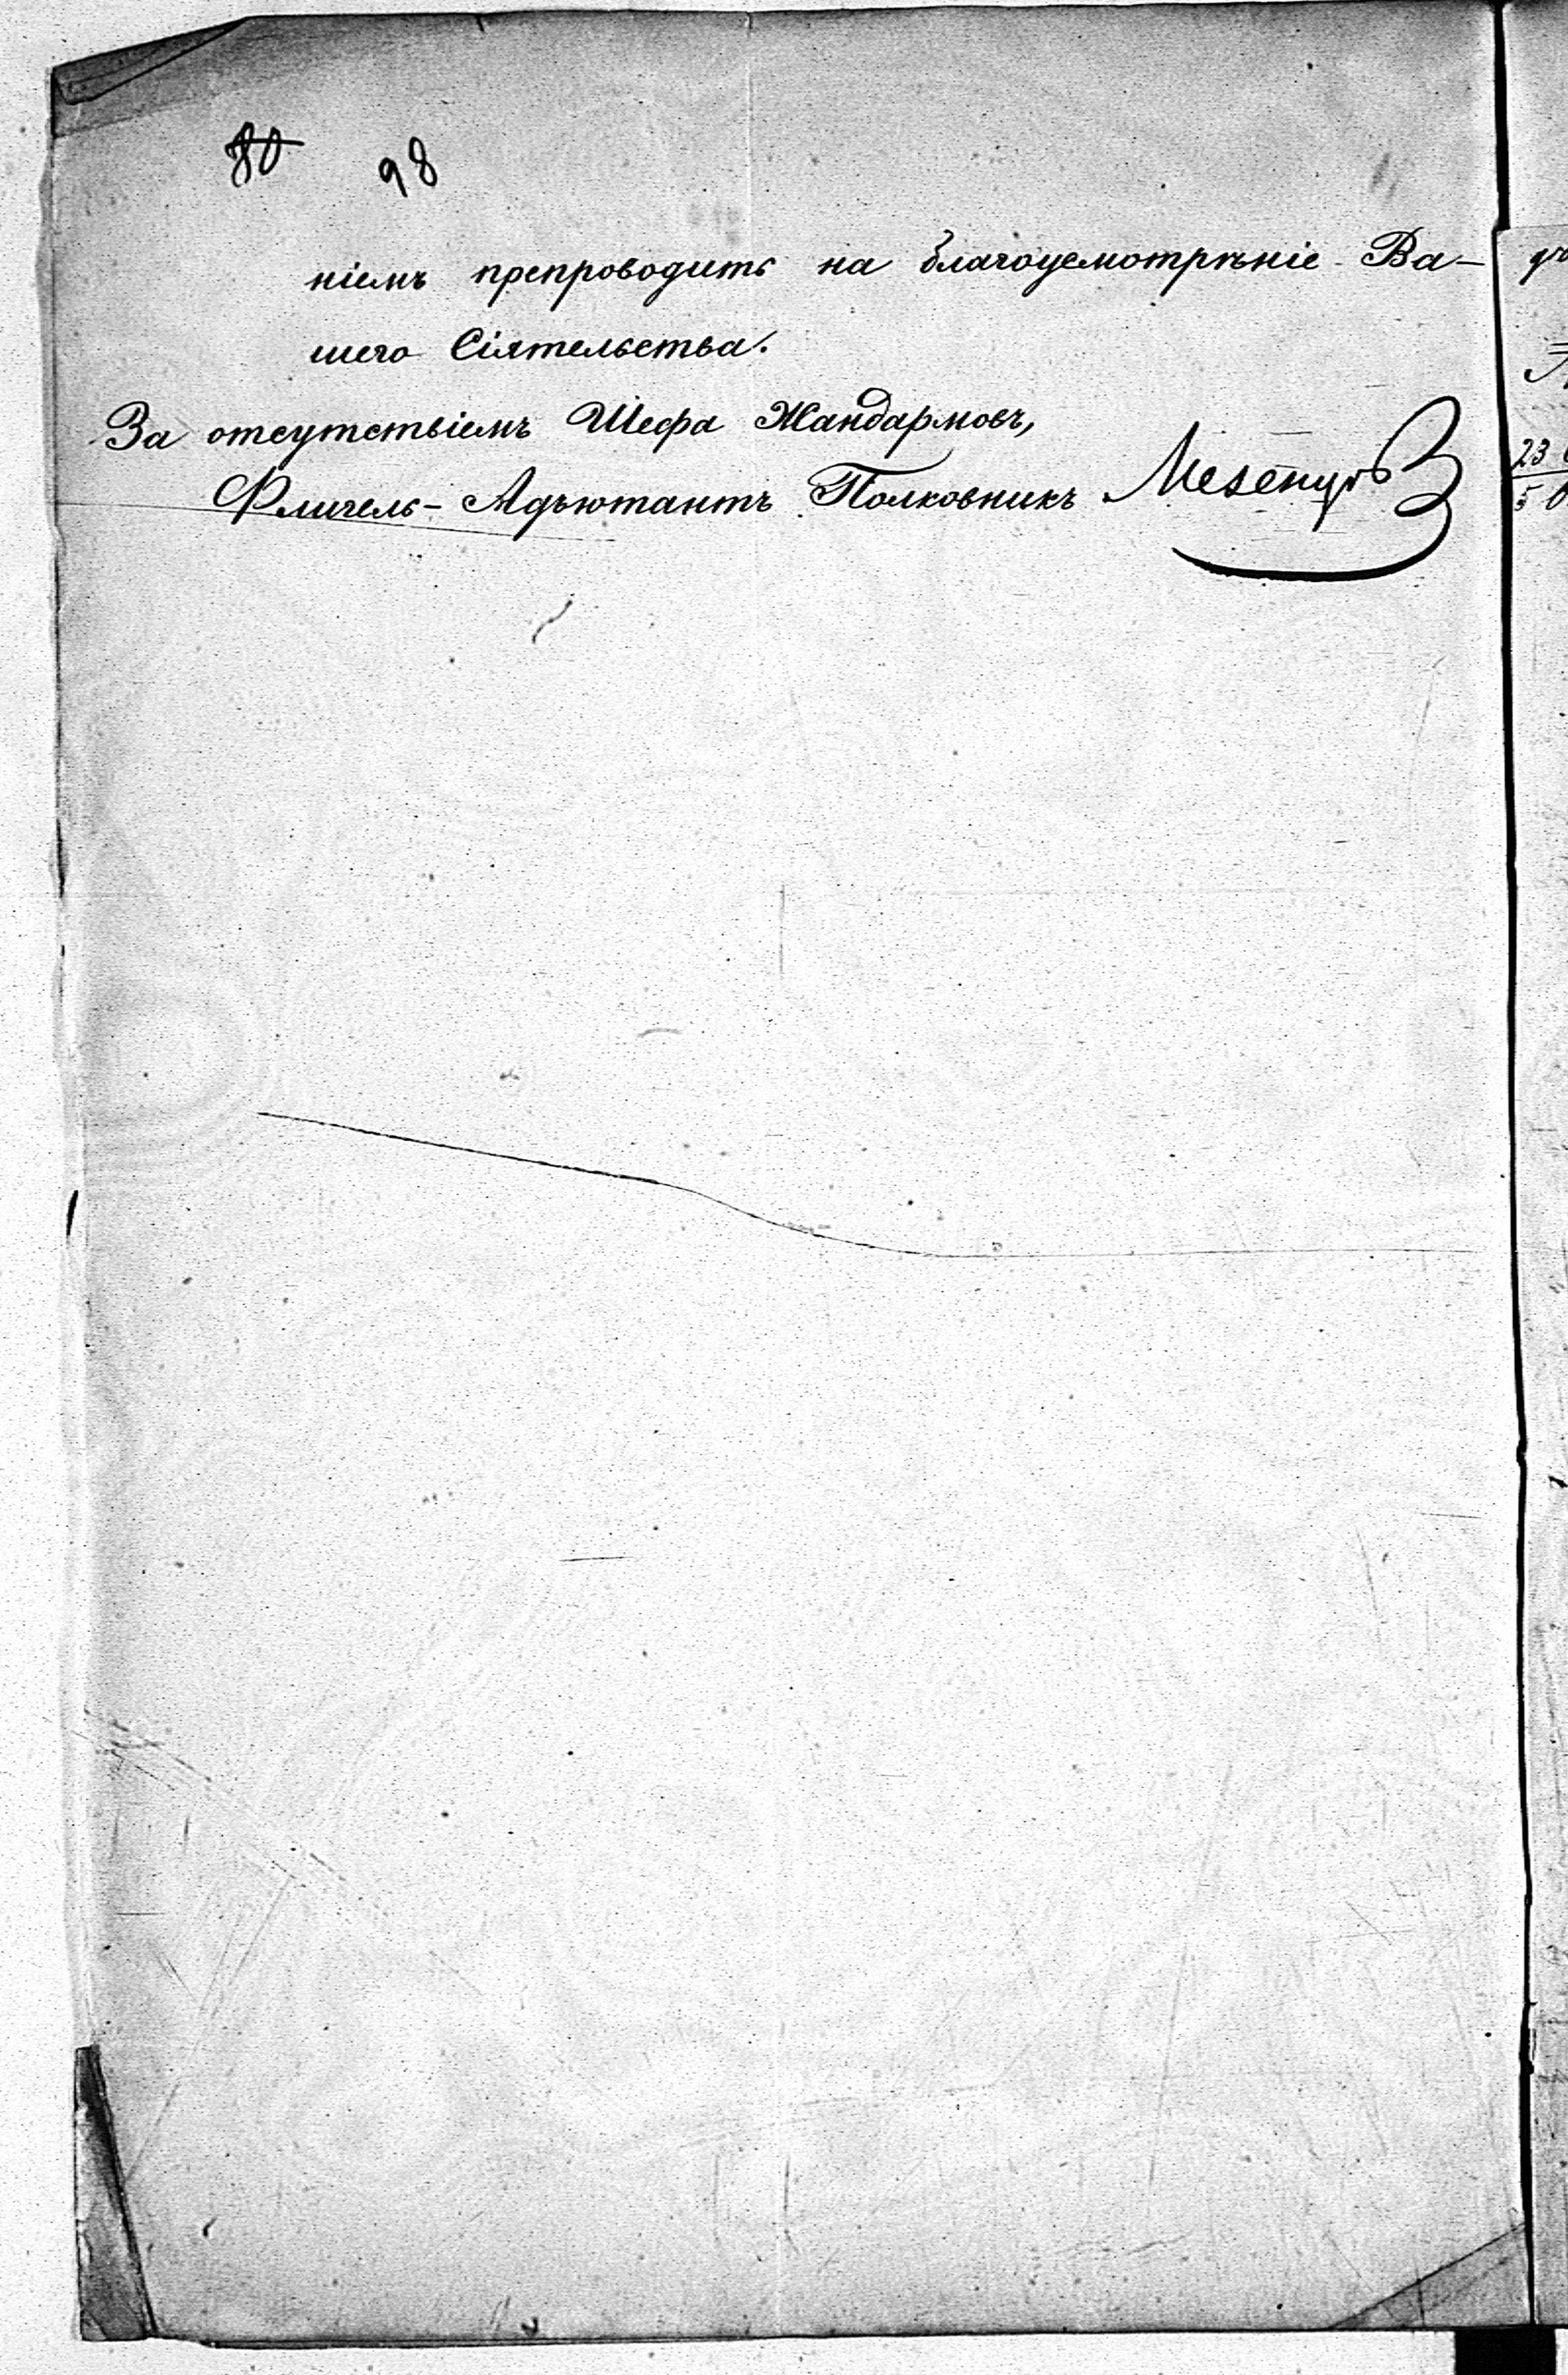 80 98
ніемъ препроводить на благоусмотрѣніе Ва-
шего Сіятельства.
За отсутствіемъ Шефа Жандармовъ,
Флигель-Адъютантъ Полковникъ Мезенцовъ
23
5